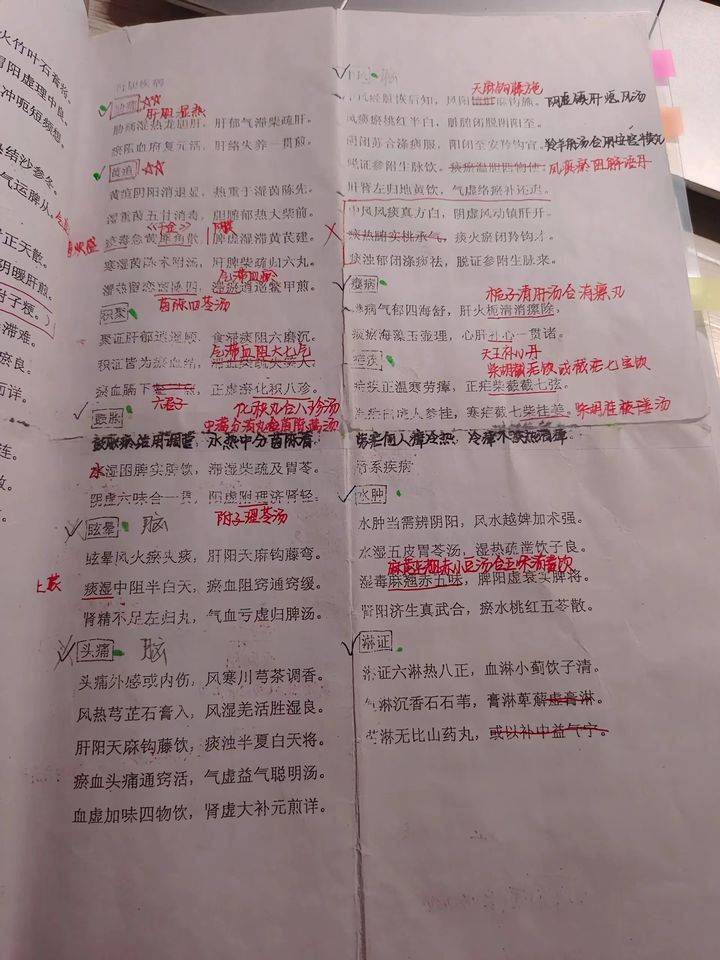 火竹叶石膏将。
胃阳虚理中良。
冲胁短频想
结沙参冬。
气运脾从。
正天散。
阴暖肝煎。
滞难。
瘀良。
详。
肝胆疾病
胁痛 肝胆湿热
胁痛湿热龙胆肝，肝郁气滞柴疏肝。
瘀阻血府复元活，肝络失养一贯煎。
黄疸
黄疸阴阳消退显，热重于湿茵陈先。
湿重茵五甘消毒，胆腑郁热大柴前。
疫毒急黄犀角散，脾虚湿滞黄芪建。
寒湿茵陈术附汤，肝脾柴疏归六丸。
气滞血瘀
湿热留恋茵陈四，滞瘀逍遥鳖甲煎。
茵陈四苓汤
积聚
聚证肝郁逍遥顺，食滞痰阻六磨沉。
气滞血阻大七气
积证皆为瘀血结，
瘀血膈下，正虚瘀化积八珍。
六君子 化积丸合八珍汤
鼓胀 中满分消丸合茵陈蒿汤
水湿困脾实脾饮，滞湿柴疏及胃苓。
阴虚六味合一贯，阳虚附理济肾轻。
附子理苓汤
眩晕 脑
眩晕风火瘀头痰，肝阳天麻钩藤弯。
上蒙 痰湿中阻半白天，瘀血阻窍通窍缓。
肾精不足左归丸，气血亏虚归脾汤。
头痛 脑
头痛外感或内伤，风寒川芎茶调香。
风热芎芷石膏入，风湿羌活胜湿良。
肝阳天麻钩藤饮，痰浊半夏白天将。
瘀血头痛通窍活，气虚益气聪明汤。
血虚加味四物饮，肾虚大补元煎详。
脑
天麻钩藤饮
阴虚镇肝熄风汤
风痰瘀桃红半白，脏腑闭脱阴阳至。
阴闭苏合涤痰服，阳闭至安羚钩宫。
脱证参附生脉饮。
风痰瘀阻解语丹
肝肾左归地黄饮，气虚络瘀补还迟。
中风风痰真方白，阴虚风动镇肝开。
痰热腑实桃承气，痰火瘀闭羚钩才。
痰浊郁闭涤痰祛，脱证参附生脉来。
瘿病
栀子清肝汤合消瘰丸
瘿病气郁四海舒，肝火栀清消瘰除，
痰瘀海藻玉壶理，心肝丹心一贯诸。
天王补心丹
疟疾 柴胡截疟饮或截疟七宝饮
疟疾正温寒劳瘴，正疟柴截截七弦。
寒疟截七柴桂姜。 柴胡桂枝干姜汤
肾系疾病
水肿
水肿当需辨阴阳，风水越婢加术强。
水湿五皮胃苓汤，湿热疏凿饮子良。
麻黄连翘赤小豆汤合五味消毒饮
湿毒麻翘赤五味，脾阳虚衰实脾将。
肾阳济生真武合，瘀水桃红五苓散。
淋证
淋证六淋热八正，血淋小蓟饮子清。
气淋沉香石石苇，膏淋萆薢虚膏淋。
劳淋无比山药丸，或以补中益气宁。